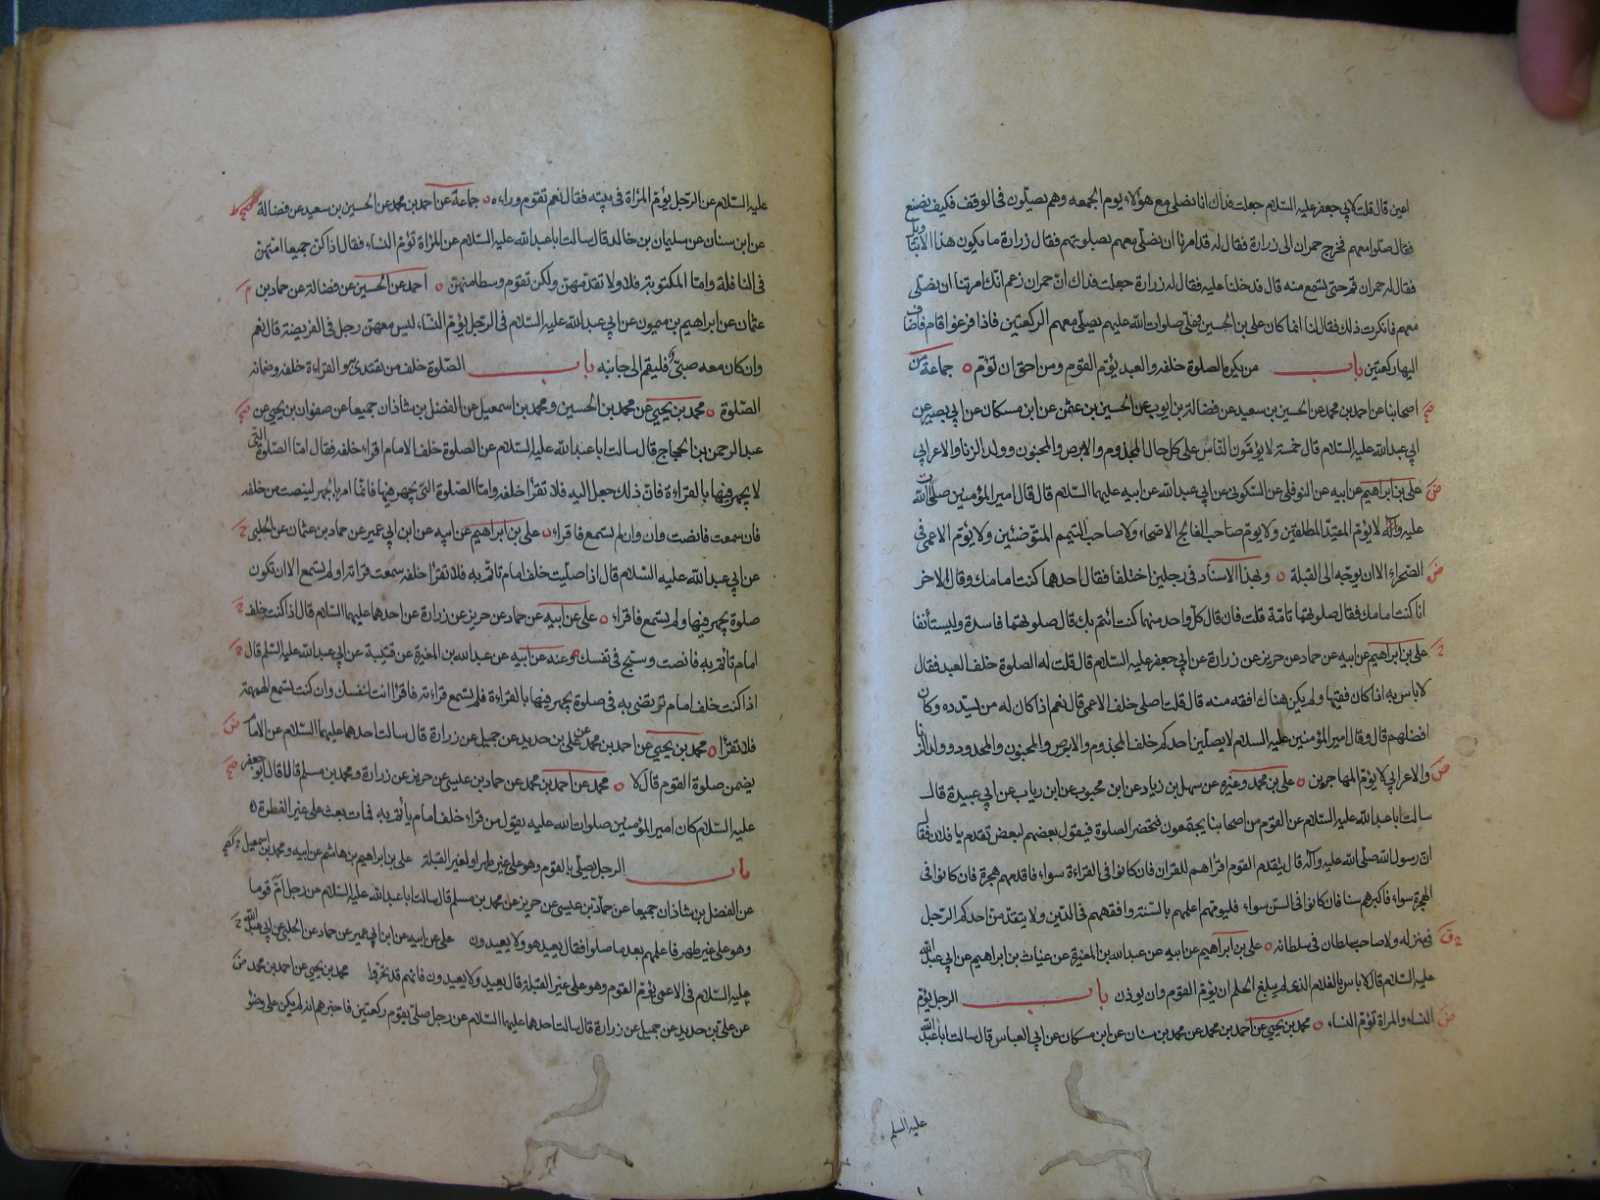 اعين قال قلت لابي جعفر عليه السلام جعلت فداك انا نصلي مع هؤلاء يوم الجمعه وهم يصلون في الوقت فكيف نصنع
فقال صلوا معهم فخرج حمران الى زرارة فقال له قد امرنا ان نصلي معهم بصلوتهم فقال زرارة ما يكون هذا الا بتاويل
فقال له حمران قم حتى نسمع منه قال فدخلنا عليه فقال له زرارة جعلت فداك انّ حمران زعم انك امرتنا ان نصلي
معهم فانكرت ذلك فقال لنا انما كان علي بن الحسين صلوات الله عليهم يصلي معهم الركعتين فاذا فرغوا قام فاضاف
اليها ركعتين باب من يكره الصلوة خلفه والعبد يؤم القوم ومن احق ان يؤم ٥ جماعة من
اصحابنا عن احمد بن محمد عن الحسين بن سعيد عن فضالة بن ايوب عن الحسين بن عثمن عن ابن مسكان عن ابي بصير عن
ابي عبد الله عليه السلام قال خمسة لا يؤمّون الناس على كل حال المجذوم والابرص والمجنون وولد الزنا والاعرابي
علي بن ابراهيم عن ابيه عن النوفلي عن السكوني عن ابي عبد الله عن ابيه عليهما السلام قال قال امير المؤمنين صلوات الله
عليه وآله لا يؤم المقيد المطلقين ولا يؤم صاحب الفالج الاصحاء ولا صاحب التيمم المتوضئين ولا يؤم الاعمى في
الصحراء الا ان يوجه الى القبلة ٥ وبهذا الاسناد في رجلين اختلفا فقال احدهما كنت امامك وقال الاخر
انا كنت امامك فقال صلوتهما تامة قلت فان قال كل واحد منهما كنت ائتم بك قال صلوتهما فاسدة وليستأنفا
علي بن ابراهيم عن ابيه عن حماد عن حريز عن زرارة عن ابي جعفر عليه السلام قال قلت له الصلوة خلف العبد فقال
لا باس به اذا كان فقيها ولم يكن هناك افقه منه قال قلت اصلي خلف الاعمى قال نعم اذا كان له من يسدده وكان
افضلهم قال وقال امير المؤمنين عليه السلام لا يصلين احدكم خلف المجذوم والابرص والمجنون والمحدود وولد الزنا
والاعرابي لا يؤم المهاجرين ٥ علي بن محمد وغيره عن سهل بن زياد عن ابن محبوب عن ابن رياب عن ابي عبيدة قال
سالت ابا عبد الله عليه السلام عن القوم من اصحابنا يجتمعون فتحضر الصلوة فيقول بعضهم لبعض تقدم يا فلان فقال
ان رسول الله صلى الله عليه وآله قال يتقدم القوم اقرأهم للقران فان كانوا في القراءة سواء فاقدمهم هجرة فان كانوا في
الهجرة سواء فاكبرهم سنا فان كانوا في السن سواء فليؤمهم اعلمهم بالسنة وافقههم في الدين ولا يتقدمن احدكم الرجل
في منزله ولا صاحب سلطان في سلطانه ٥ علي بن ابراهيم عن ابيه عن عبد الله بن المغيرة عن غياث بن ابراهيم عن ابي عبد الله
عليه السلام قال لا باس بالغلام الذي لم يبلغ الحلم ان يؤم القوم وان يوذن باب الرجل يؤم
النساء والمراة تؤم النساء ٥ محمد بن يحيى عن احمد بن محمد عن محمد بن سنان عن ابن مسكان عن ابي العباس قال سالت ابا عبد الله
عليه السلم
عليه السلام عن الرجل يؤم المرأة في بيته فقال نعم تقوم وراءه ٥ جماعة عن احمد بن محمد عن الحسين بن سعيد عن فضالة
عن ابن سنان عن سليمان بن خالد قال سالت ابا عبد الله عليه السلام عن المرأة تؤم النساء فقال اذا كن جميعا امتهن
في النافلة وامّا المكتوبة فلا ولا تقدمهن ولكن تقوم وسطا منهن ٥ احمد عن الحسين عن فضالة عن حماد بن
عثمان عن ابراهيم بن ميمون عن ابي عبد الله عليه السلام في الرجل يؤم النساء ليس معهن رجل في الفريضة قال نعم
وان كان معه صبي فليقم الى جانبه باب الصلوة خلف من يقتدى به والقراءة خلفه وضمانه
الصلوة ٥ محمد بن يحيى عن محمد بن الحسين ومحمد بن اسمعيل عن الفضل بن شاذان جميعا عن صفوان بن يحيى عن
عبد الرحمن بن الحجاج قال سالت ابا عبد الله عليه السلام عن الصلوة خلف الامام اقراء خلفه فقال امّا الصلوة التي
لا يجهر فيها بالقراءة فانّ ذلك جعل اليه فلا تقرأ خلفه وامّا الصلوة التي يجهر فيها فانما امر بالجهر لينصت من خلفه
فان سمعت فانصت وان لم تسمع فاقراء ٥ علي بن ابراهيم عن ابيه عن ابن ابي عمير عن حماد بن عثمان عن الحلبي
عن ابي عبد الله عليه السلام قال اذا صليت خلف امام تاتم به فلا تقرأ خلفه سمعت قراته او لم تسمع الا ان تكون
صلوة يجهر فيها ولم تسمع فاقراء ٥ علي عن ابيه عن حماد عن حريز عن زرارة عن احدهما عليهما السلام قال اذا كنت خلف
امام تأتم به فانصت وسبح في نفسك ٥ وعنه عن ابيه عن عبد الله بن المغيرة عن قتيبة عن ابي عبد الله عليه السلم قال
اذا كنت خلف امام ترتضي به في صلوة يجهر فيها بالقراءة فلم تسمع قراءته فاقرأ انت لنفسك وان كنت تسمع الهمهمة
فلا تقرأ ٥ محمد بن يحيى عن احمد بن محمد عن علي بن حديد عن جميل عن زرارة قال سالت احدهما عليهما السلام عن الامام
يضمن صلوة القوم قال لا ٥ محمد عن احمد بن محمد عن حماد بن عيسى عن حريز عن زرارة ومحمد بن مسلم قالا قال ابو جعفر
عليه السلام كان امير المؤمنين صلوات الله عليه يقول من قراء خلف امام يأتم به فمات بعث على غير الفطرة ٥
باب الرجل يصلي بالقوم وهو على غير طهر او لغير القبلة علي بن ابراهيم بن هاشم عن ابيه ومحمد بن اسمعيل
عن الفضل بن شاذان جميعا عن حماد بن عيسى عن حريز عن محمد بن مسلم قال سالت ابا عبد الله عليه السلام عن رجل امّ قوما
وهو على غير طهر فاعلمهم بعد ما صلوا فقال يعيد هو ولا يعيدون علي عن ابيه عن ابن ابي عمير عن حماد عن الحلبي عن ابي عبد الله
عليه السلام في الاعمى يؤم القوم وهو على غير القبلة قال يعيد ولا يعيدون فانهم قد تحروا محمد بن يحيى عن احمد بن محمد
عن علي بن حديد عن جميل عن زرارة قال سالت احدهما عليهما السلام عن رجل صلى بقوم ركعتين فاخبرهم انه لم يكن على وضوء